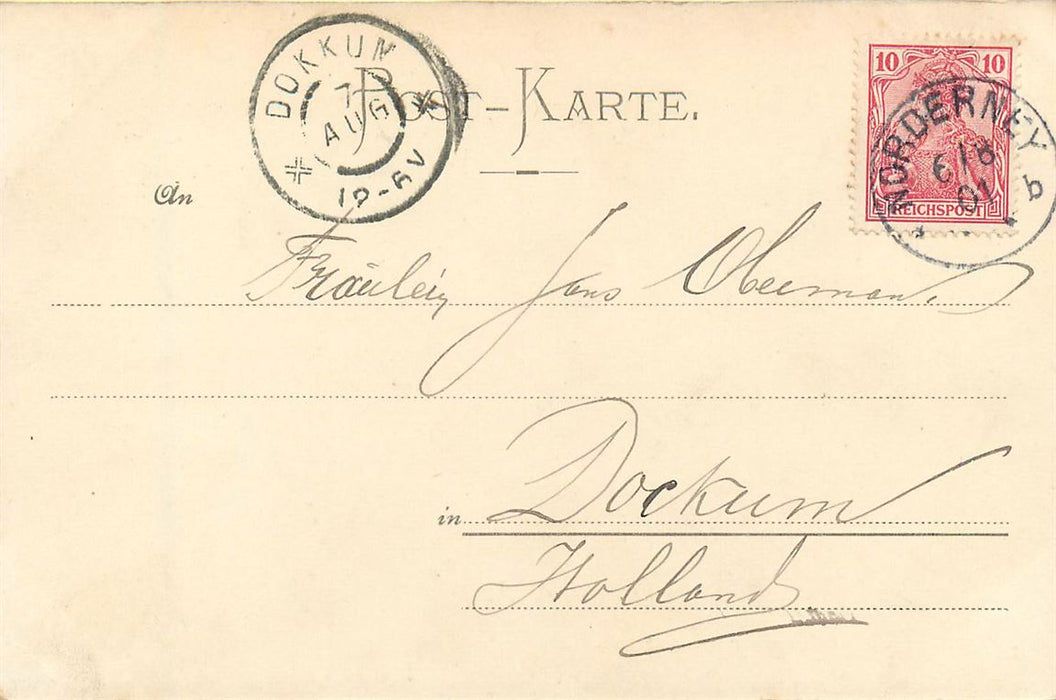 DOKKUM
7
AUG
12-6V
POST-KARTE.
10 10
REICHSPOST
NORDERNEY
6/8
01
b
An
Fräulein Jans
in Dockum
Holland